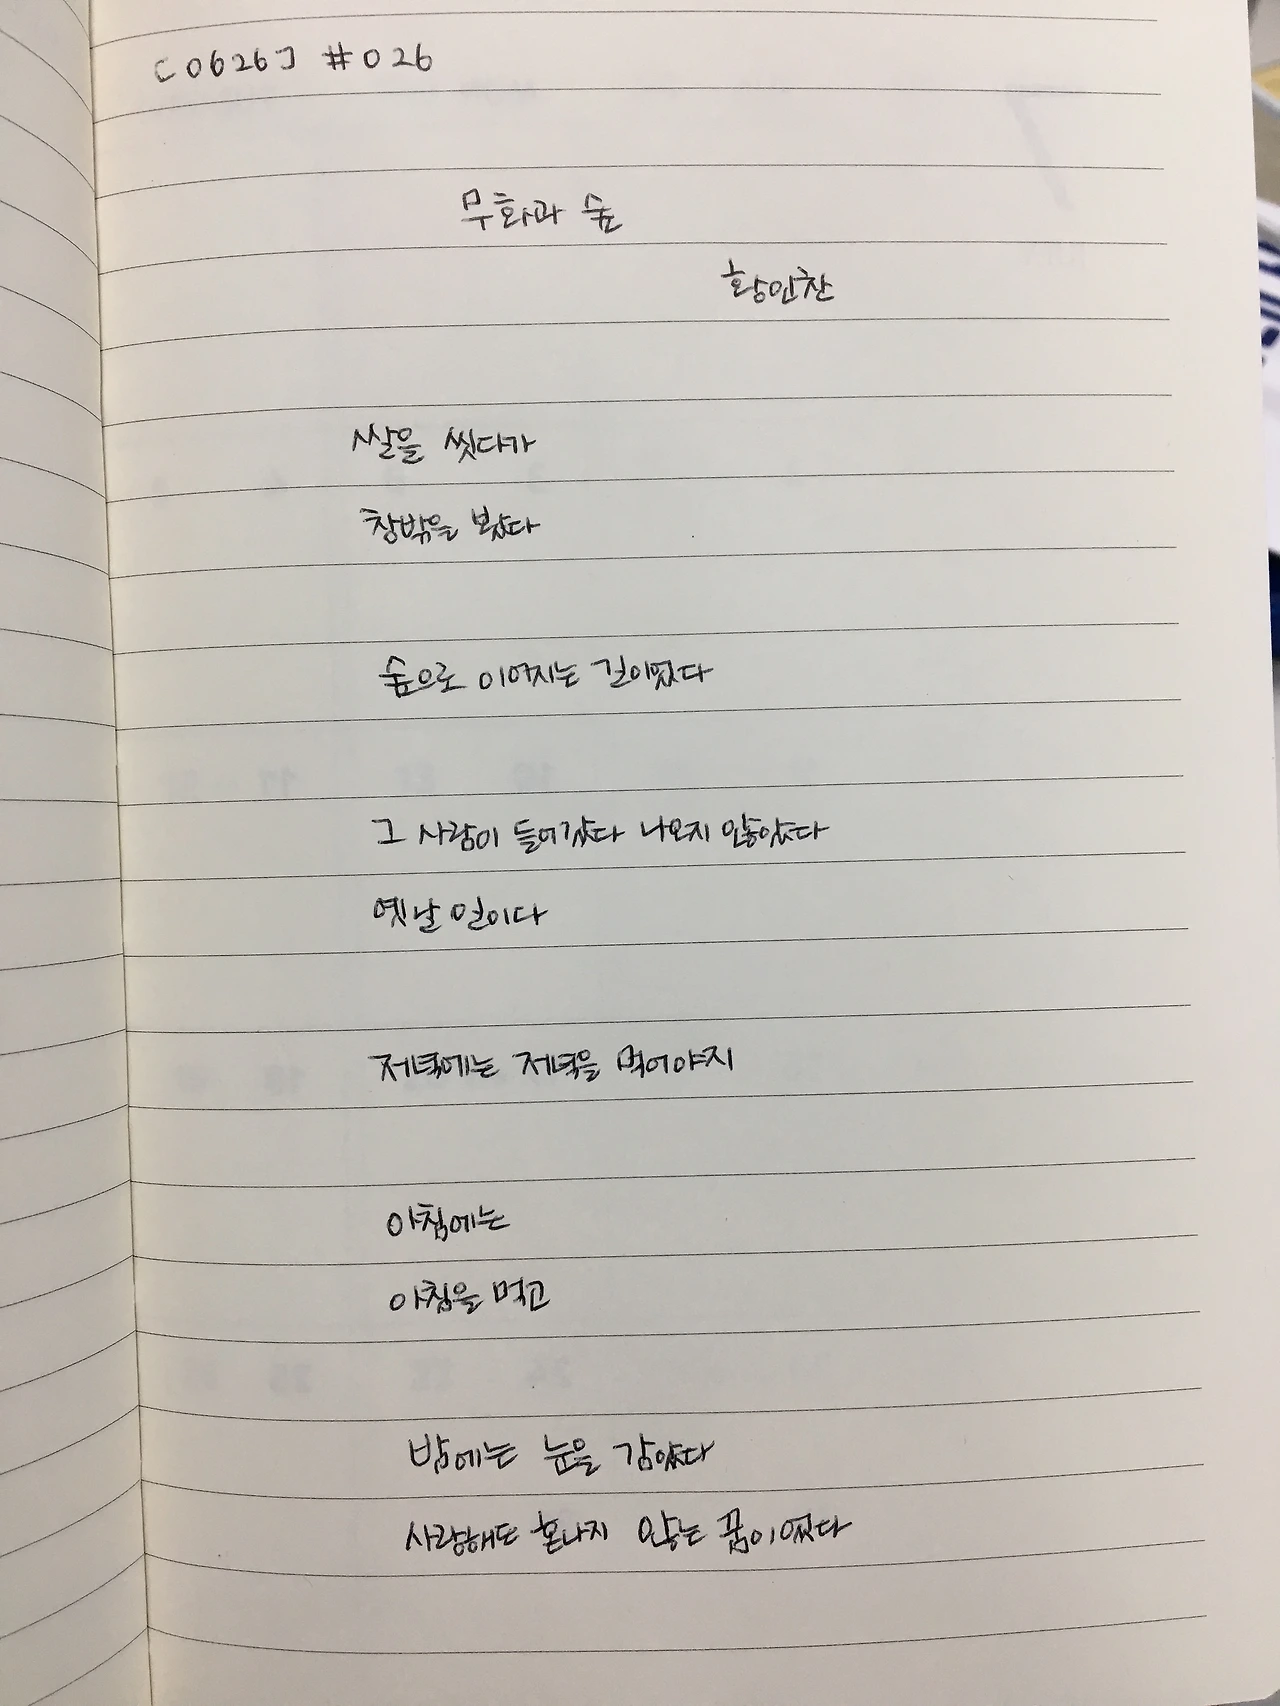 [0626] #026
무화과 숲
황인찬
쌀을 씻다가
창밖을 봤다
숲으로 이어지는 길이었다
그 사람이 들어갔다 나오지 않았다
옛날 일이다
저녁에는 저녁을 먹어야지
아침에는
아침을 먹고
밤에는 눈을 감았다
사랑해도 혼나지 않는 꿈이었다